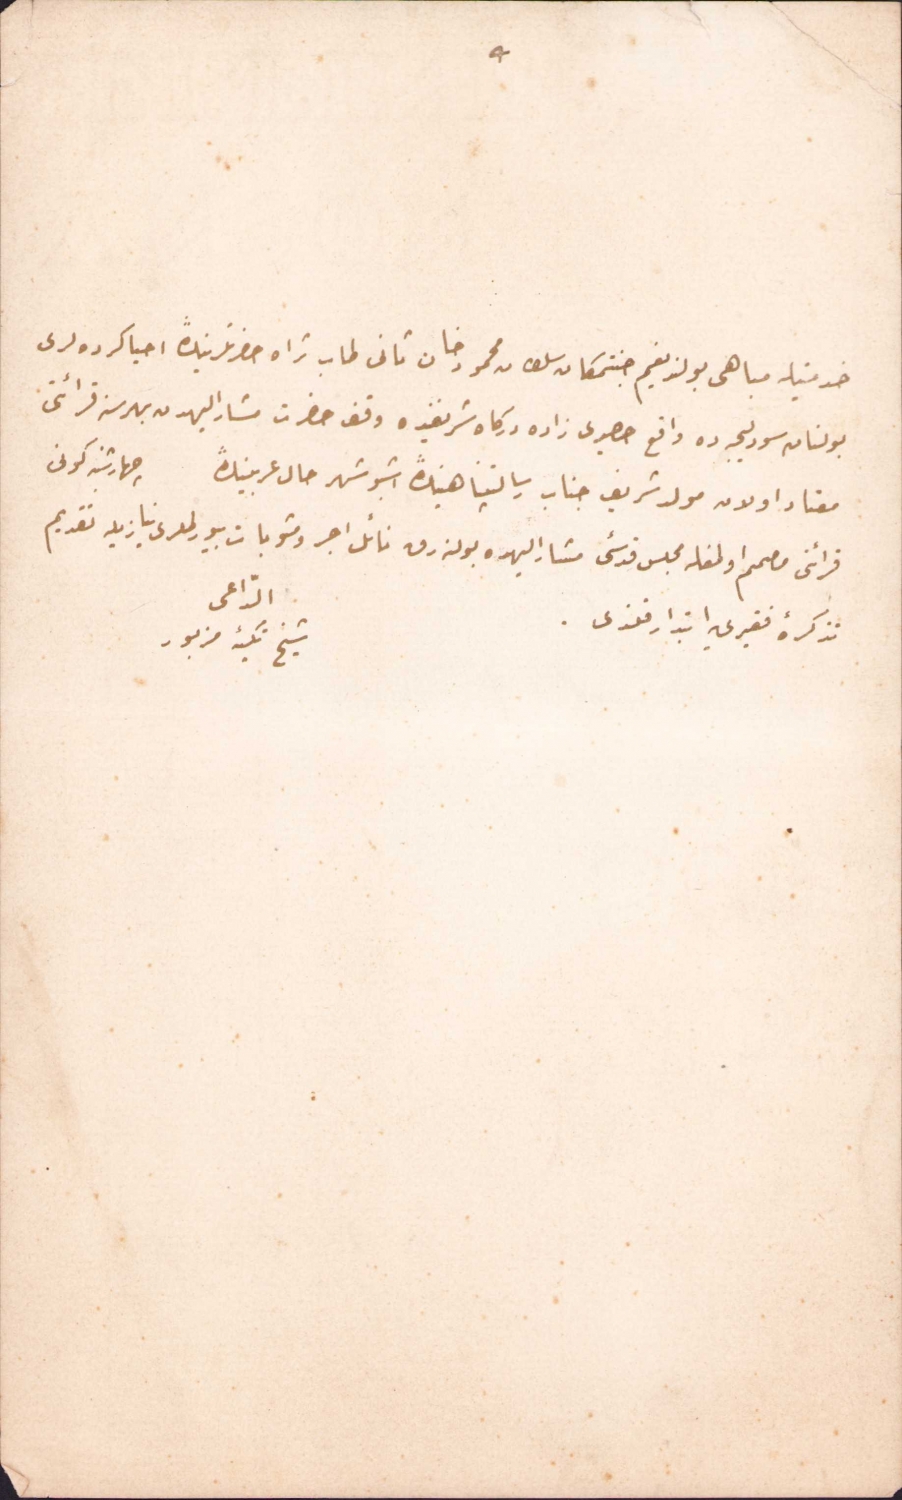 خدمتیله مباهی بولندیغم جنتمکان سلطان محمود خان ثانی طاب ثراه حضرتلرینك احیاکرده لری
بولنان سودلیجه ده واقع حصیری زاده درکاه شریفنده وقف حضرت مشار الیهدن بهر سنه قرائتی
معتاد اولان مولد شریف جناب رسالتپناهینك اشبو شهر حال عربینك چهارشنبه کونی
قرائتی مصمم اولمغله مجلس قدسئ مشار الیهده بولنه رق نائل اجر و مثوبات بیورلملری نیازیله تقدیم
تذکرۀ فقیری یه ابتدار قلندی .
الداعی
شیخ تکیۀ مزبور